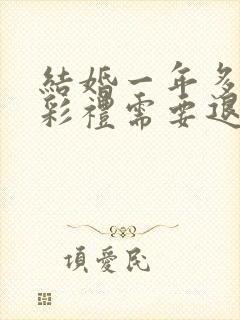 結婚一年多
彩禮需要退
項愛民